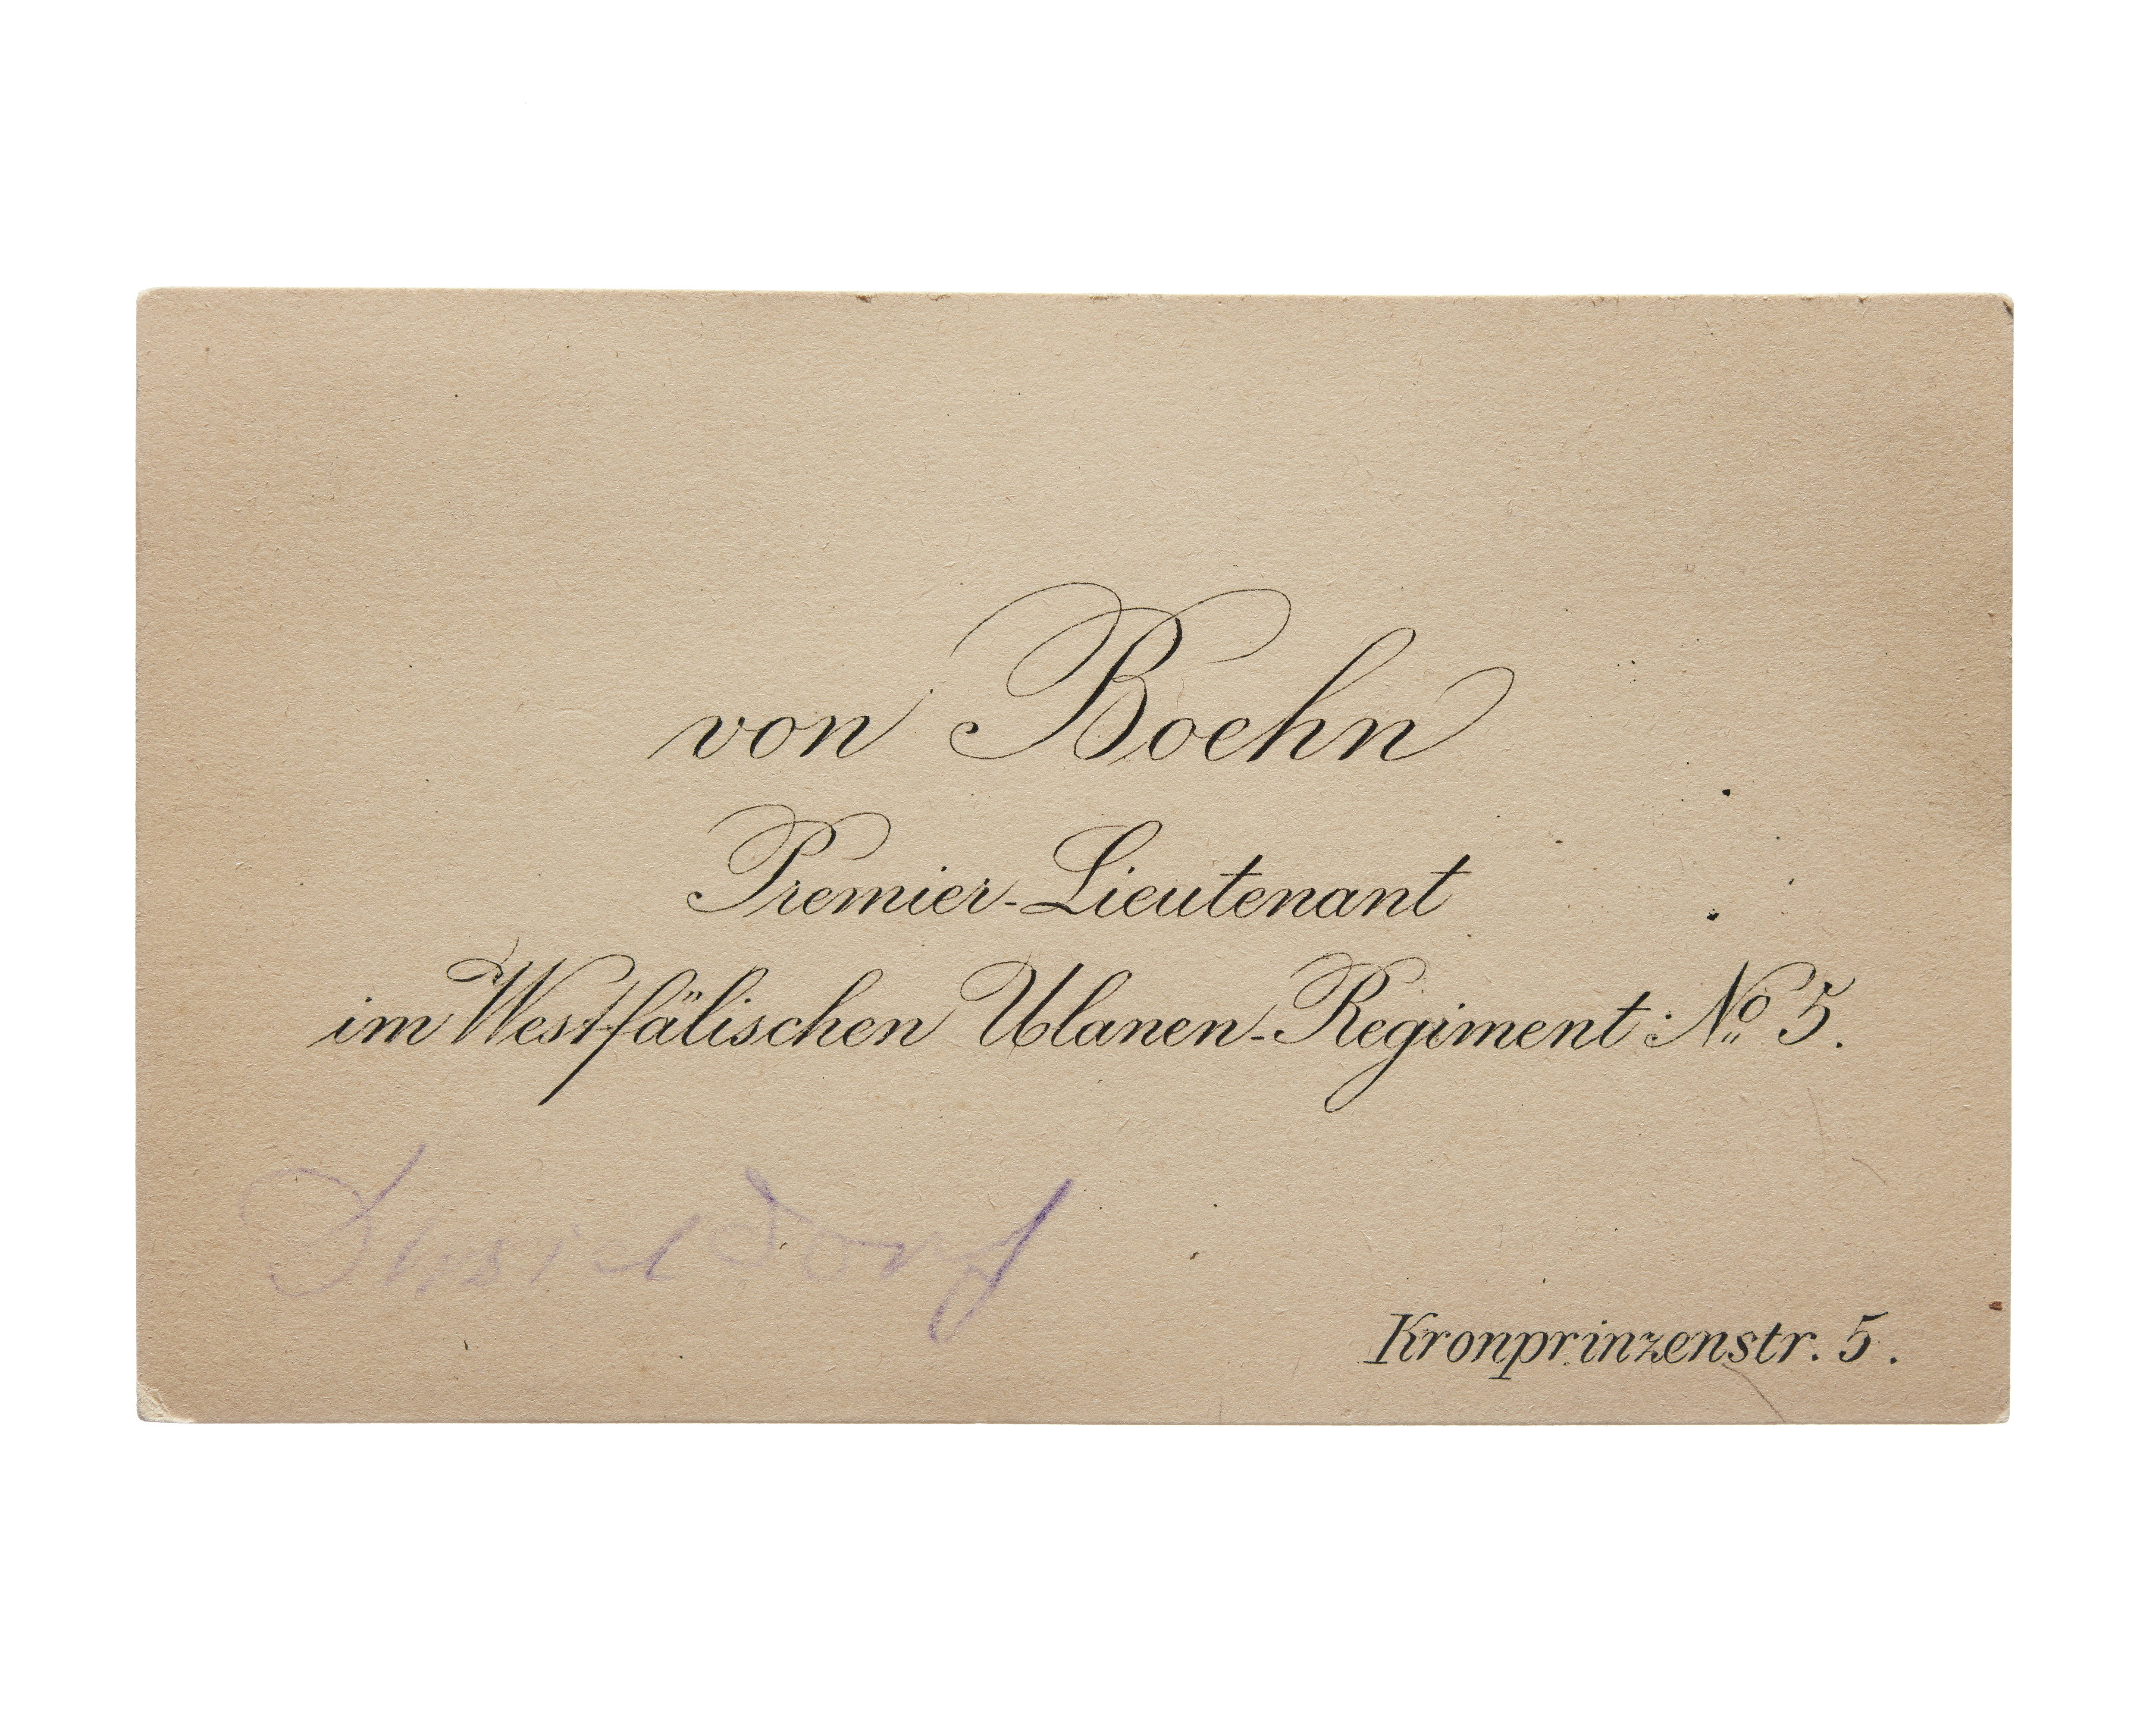 von Boehn
Premier-Lieutenant
im Westfälischen Ulanen-Regiment No 5.
Düsseldorf
Kronprinzenstr. 5.